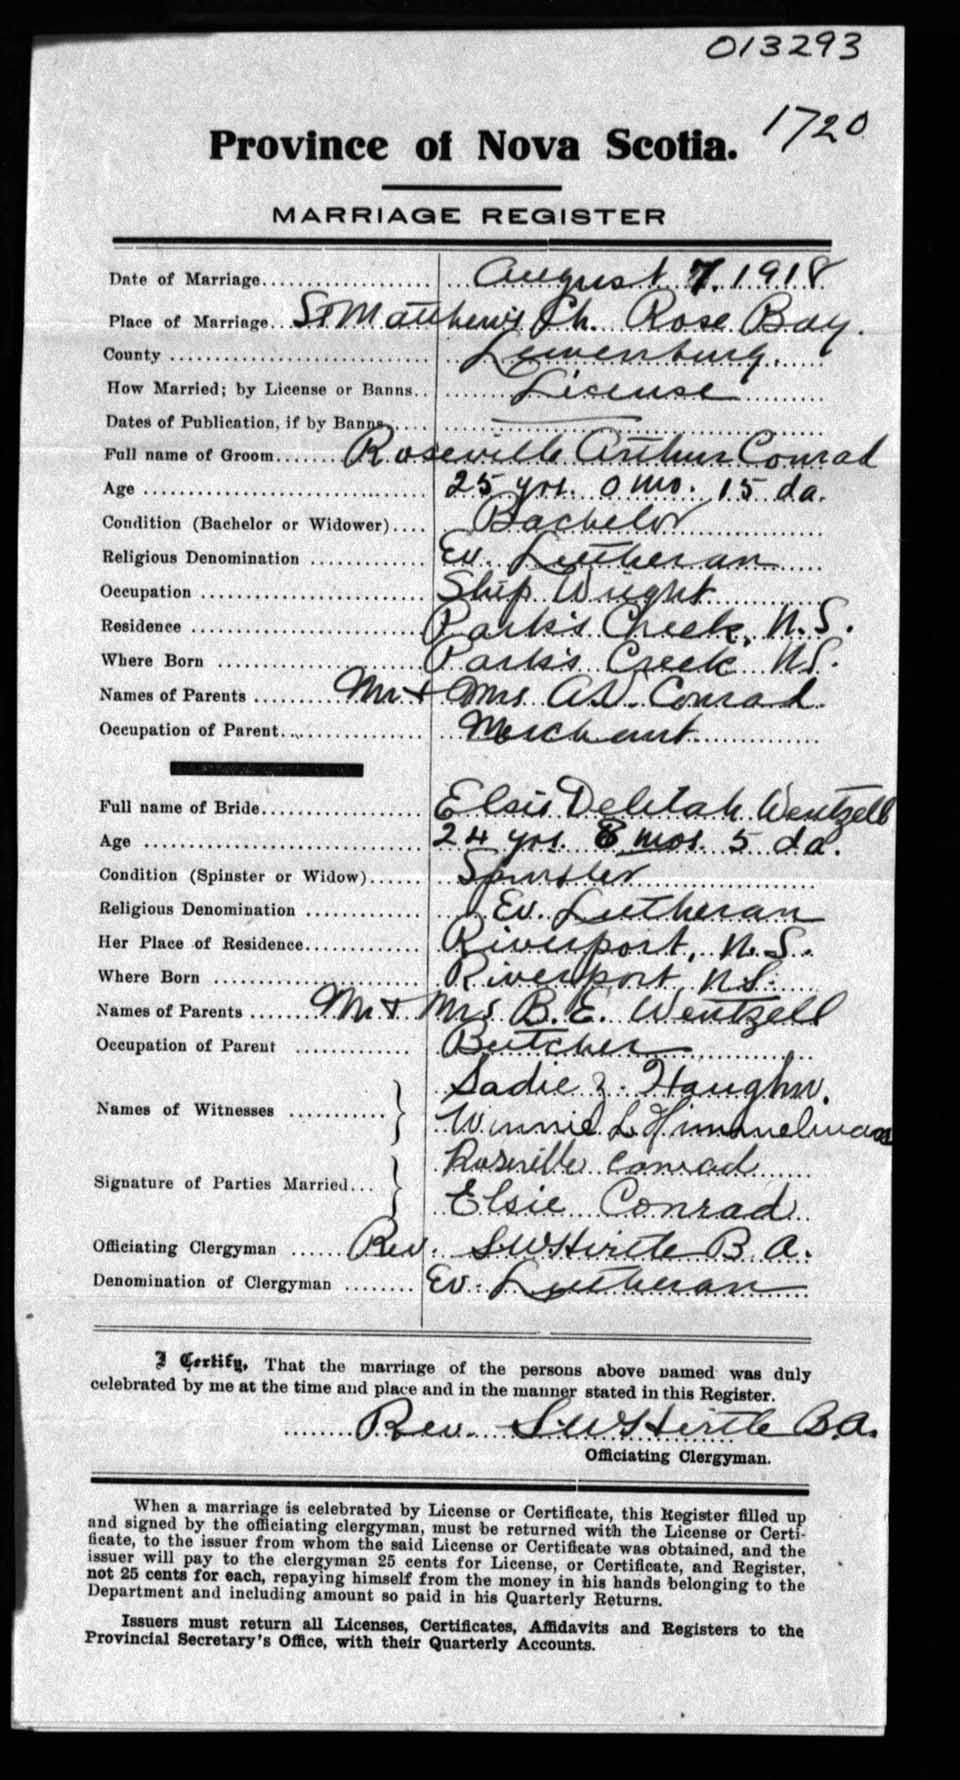 013293
1720
Province of Nova Scotia.
MARRIAGE REGISTER
Date of Marriage.................... August 7. 1918
Place of Marriage... St Matthew's Ch. Rose Bay.
County ........................... Lunenburg.
How Married; by License or Banns.. License
Dates of Publication, if by Banns....
Full name of Groom....... Roseville Arthur Conrad
Age ............................. 25 yrs. 0 mo. 15 da.
Condition (Bachelor or Widower).... Bachelor
Religious Denomination ............. Ev. Lutheran
Occupation ......................... Ship Wright
Residence .......................... Park's Creek, N.S.
Where Born ....................... Park's Creek N.S.
Names of Parents ........ Mr & Mrs A.D. Conrad.
Occupation of Parent................ Merchant
Full name of Bride................ Elsie Delilah Wentzell
Age ............................. 24 yrs. 8 mos. 5 da.
Condition (Spinster or Widow)...... Spinster
Religious Denomination ............. Ev. Lutheran
Her Place of Residence............. Riverport, N.S.
Where Born ....................... Riverport, N.S.
Names of Parents ....... Mr & Mrs B. E. Wentzell
Occupation of Parent ............. Butcher
Sadie Haughn.
Names of Witnesses ...........
Winnie L Himmelman
Roseville Conrad
Signature of Parties Married...
Elsie Conrad
Officiating Clergyman ...... Rev. S W Hirtle B. A.
Denomination of Clergyman ........ Ev. Lutheran
I Certify, That the marriage of the persons above named was duly
celebrated by me at the time and place and in the manner stated in this Register.
........ Rev. S W Hirtle B.A.
Officiating Clergyman.
When a marriage is celebrated by License or Certificate, this Register filled up
and signed by the officiating clergyman, must be returned with the License or Certi-
ficate, to the issuer from whom the said License or Certificate was obtained, and the
issuer will pay to the clergyman 25 cents for License, or Certificate, and Register,
not 25 cents for each, repaying himself from the money in his hands belonging to the
Department and including amount so paid in his Quarterly Returns.
Issuers must return all Licenses, Certificates, Affidavits and Registers to the
Provincial Secretary's Office, with their Quarterly Accounts.